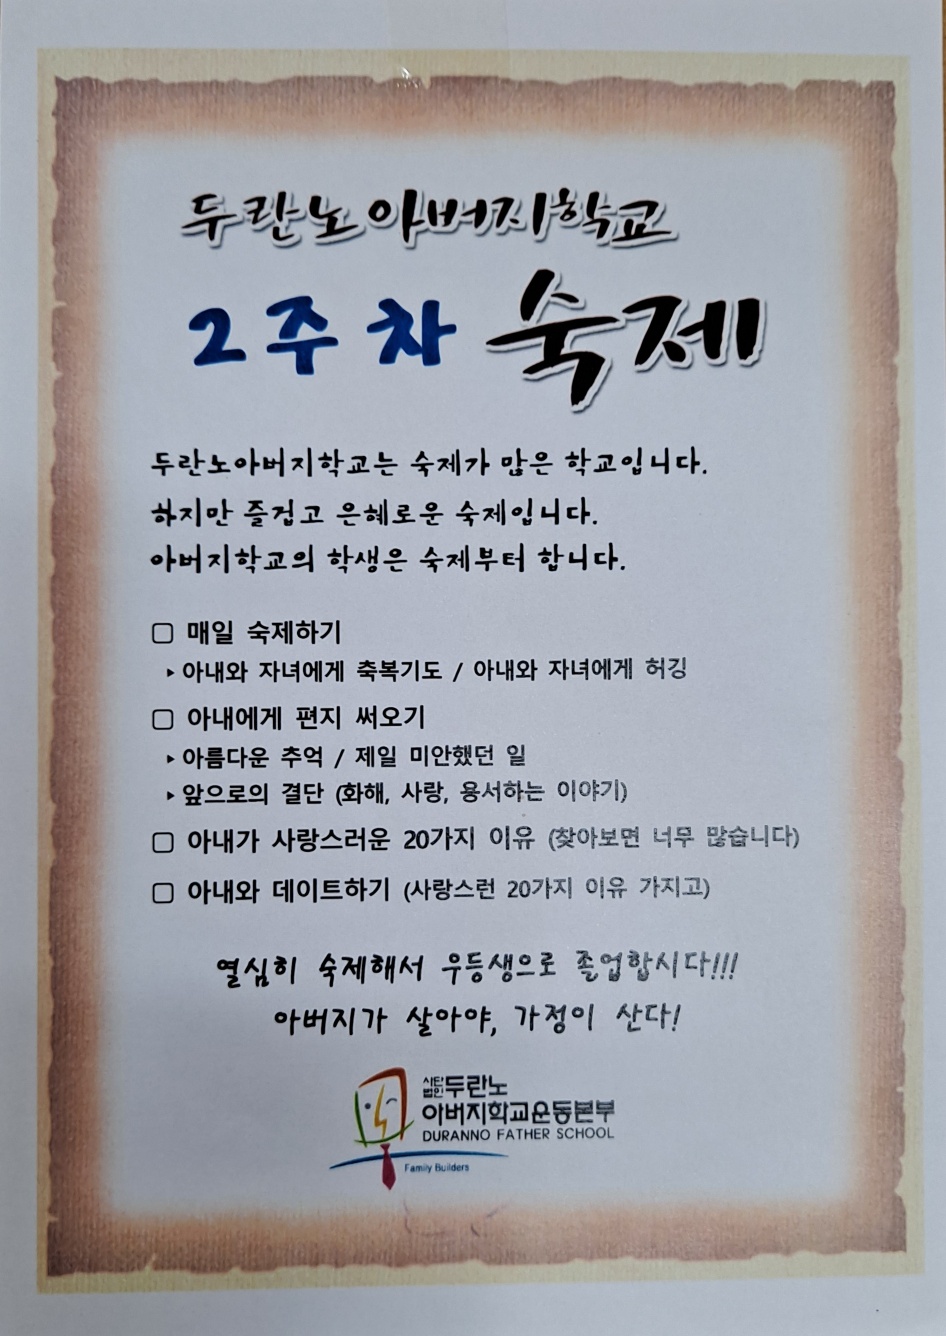 두란노아버지학교
2주차 숙제
두란노아버지학교는 숙제가 많은 학교입니다.
하지만 즐겁고 은혜로운 숙제입니다.
아버지학교의 학생은 숙제부터 합니다.
▢ 매일 숙제하기
▸아내와 자녀에게 축복기도 / 아내와 자녀에게 허깅
▢ 아내에게 편지 써오기
▸아름다운 추억 / 제일 미안했던 일
▸앞으로의 결단 (화해, 사랑, 용서하는 이야기)
▢ 아내가 사랑스러운 20가지 이유 (찾아보면 너무 많습니다)
▢ 아내와 데이트하기 (사랑스런 20가지 이유 가지고)
열심히 숙제해서 우등생으로 졸업합시다!!!
아버지가 살아야, 가정이 산다!
사단법인 두란노
아버지학교운동본부
DURANNO FATHER SCHOOL
Family Builders